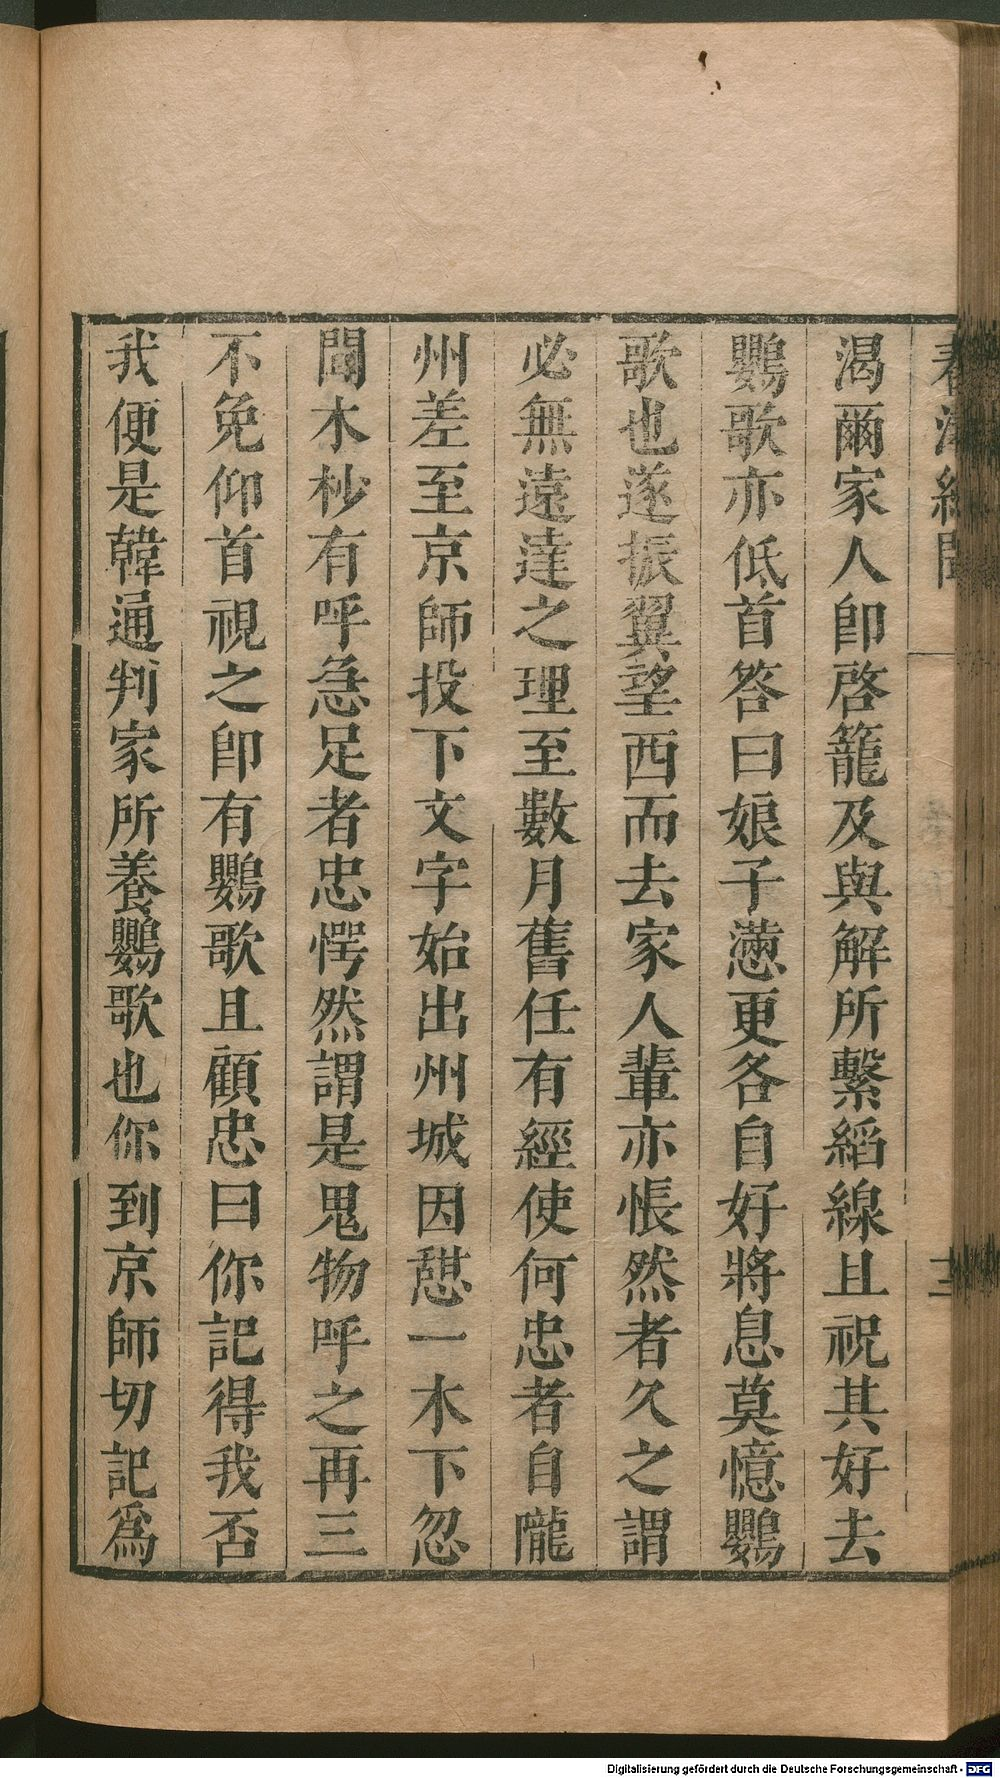 春渚紀聞
渴爾家人卽啓籠及與解所繫縚線且祝其好去
鸚歌亦低首答曰娘子懣更各自好將息莫憶鸚
歌也遂振翼望西而去家人輩亦悵然者久之謂
必無遠達之理至數月舊任有經使何忠者自隴
州差至京師投下文字始出州城因憇一木下忽
聞木杪有呼急足者忠愕然謂是鬼物呼之再三
不免仰首視之卽有鸚歌且顧忠曰你記得我否
我便是韓通判家所養鸚歌也你到京師切記爲
Digitalisierung gefördert durch die Deutsche Forschungsgemeinschaft - DFG